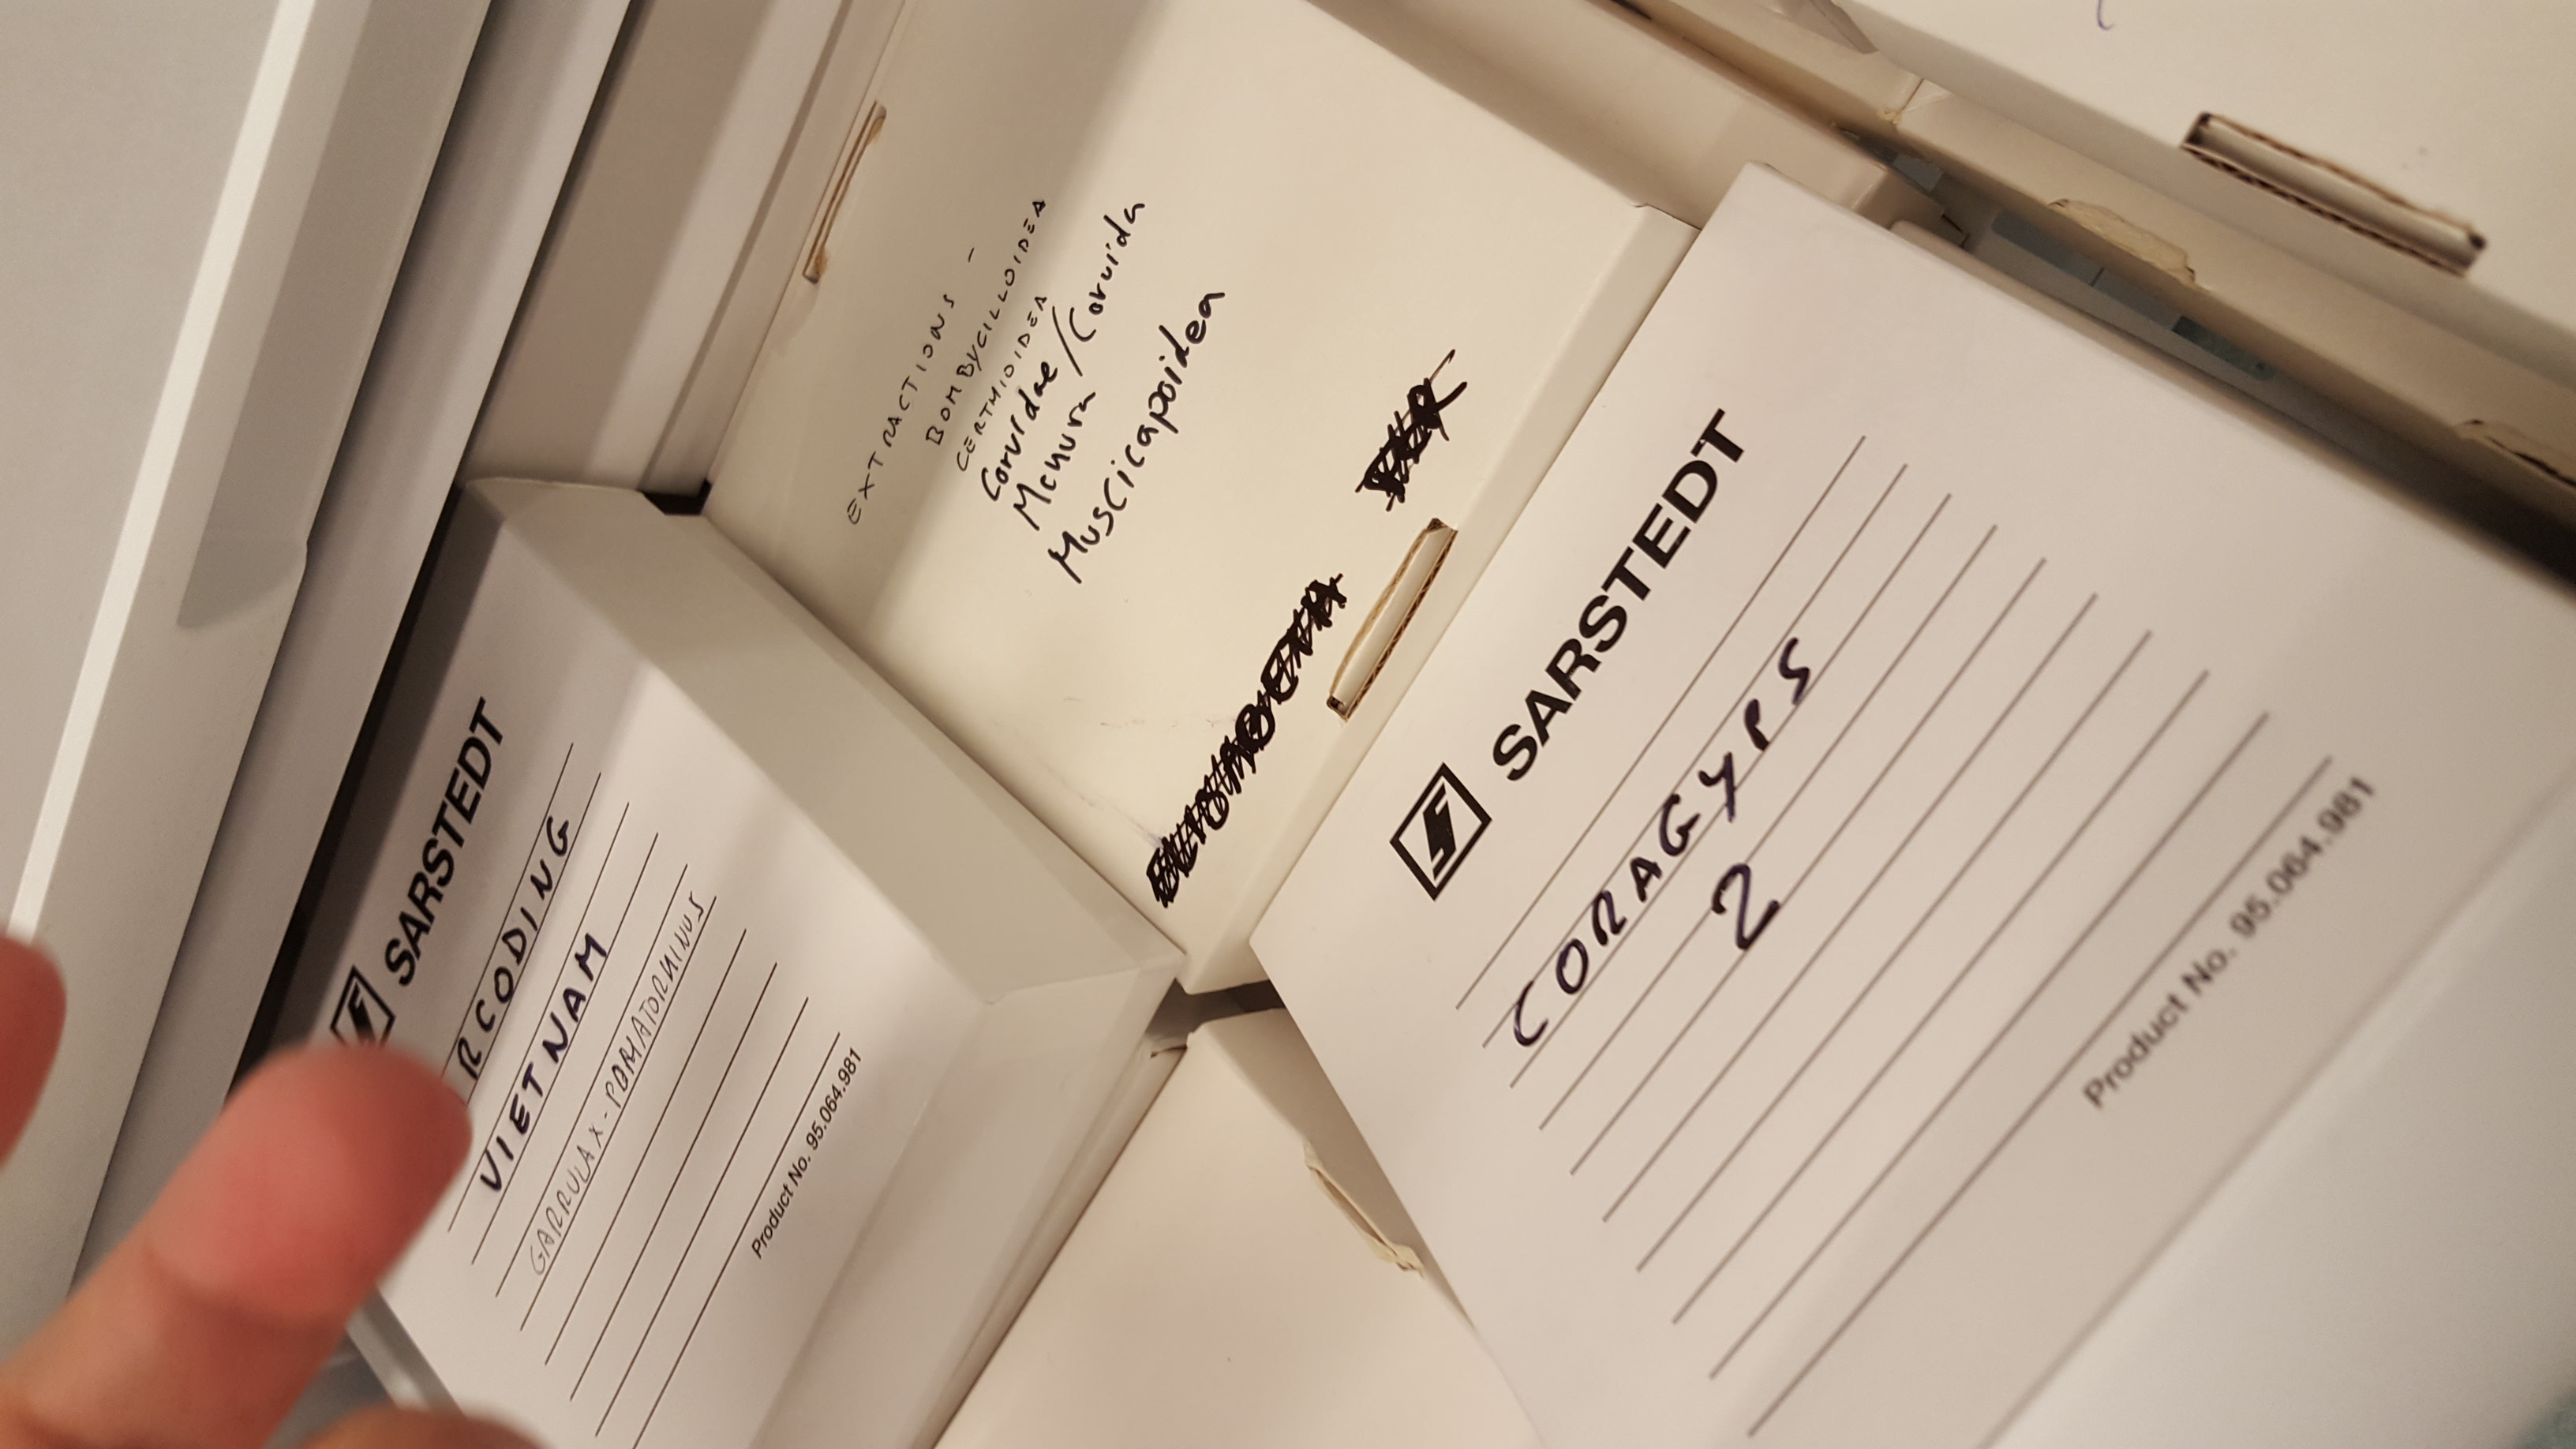 SARSTEDT
RCODING
VIETNAM
GARRULAX-POMATORHINUS
Product No. 95.064.981
EXTRACTIONS -
BOMBYCILLOIDEA
CERTHIOIDEA
Corvidae/Corvida
Menura
Muscicapoidea
SARSTEDT
CORAGYPS
2
Product No. 95.064.981